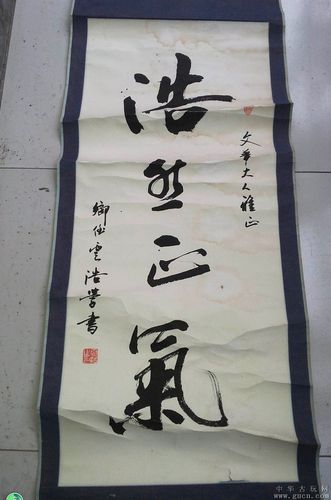 浩然正氣
文華大人雅正
浩学書
中华古玩网
www.gucn.com